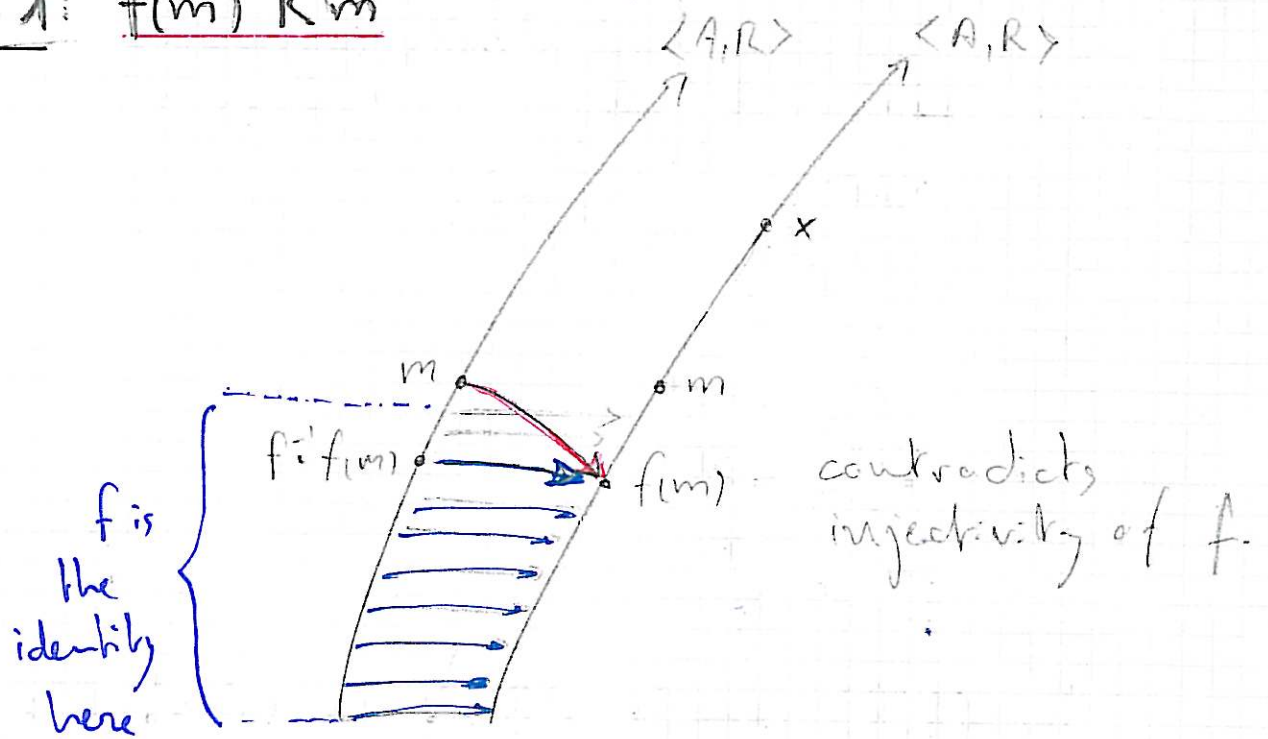 1: f(m) R m
<A,R> <A,R>
x
m m
f⁻¹f(m) f(m) contradicts
injectivity of f.
f is
the
identity
here